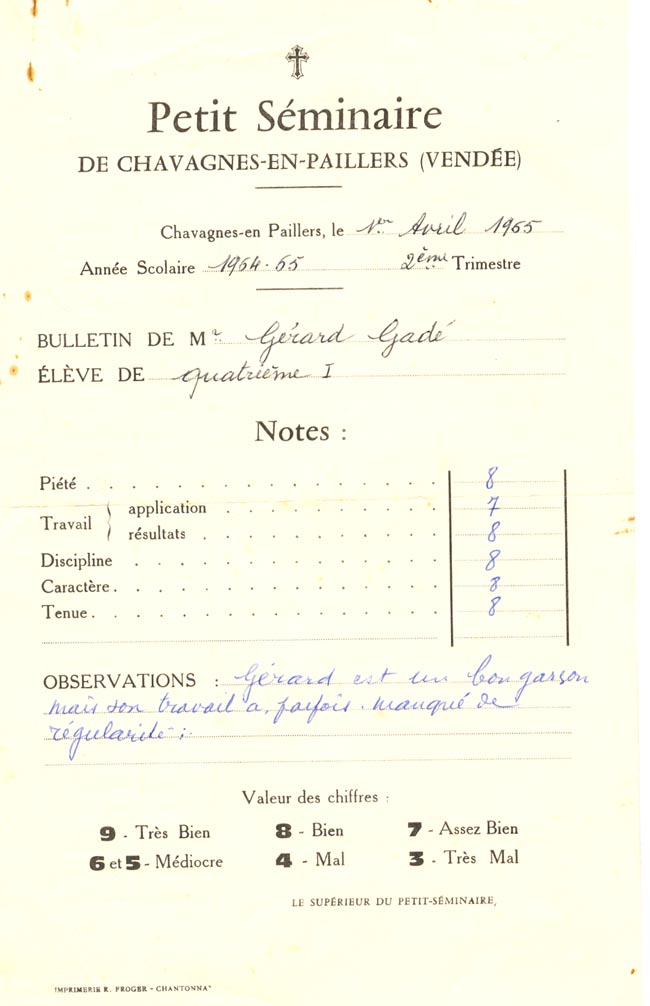 Petit Séminaire
DE CHAVAGNES-EN-PAILLERS (VENDÉE)
Chavagnes-en Paillers, le 1er Avril 1965
Année Scolaire 1964-65 2ème Trimestre
BULLETIN DE Mr Gérard Gadé
ÉLÈVE DE quatrième I
Notes :
Piété . . . . . . . . . . . . . . 8
Travail { application . . . . . . . . . 7
résultats . . . . . . . . . . 8
Discipline . . . . . . . . . . . . 8
Caractère . . . . . . . . . . . . . 8
Tenue . . . . . . . . . . . . . . 8
OBSERVATIONS : Gérard est un bon garson
mais son travail a, parfois. manqué de
régularité.
Valeur des chiffres :
9 - Très Bien 8 - Bien 7 - Assez Bien
6 et 5 - Médiocre 4 - Mal 3 - Très Mal
LE SUPÉRIEUR DU PETIT-SÉMINAIRE,
IMPRIMERIE R. FROGER - CHANTONNAY